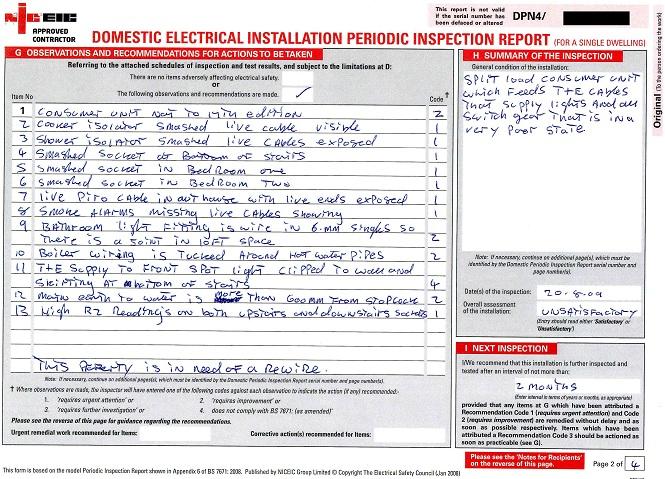 NICEIC
APPROVED
CONTRACTOR
This report is not valid
if the serial number has
been defaced or altered
DPN4/
DOMESTIC ELECTRICAL INSTALLATION PERIODIC INSPECTION REPORT (FOR A SINGLE DWELLING)
Original (To the person ordering the work)
G OBSERVATIONS AND RECOMMENDATIONS FOR ACTIONS TO BE TAKEN
Referring to the attached schedules of inspection and test results, and subject to the limitations at D:
There are no items adversely affecting electrical safety.
or
The following observations and recommendations are made. ✓
Item No
Code †
1 Consumer unit not to 17th edition 2
2 Cooker isolator smashed live cable visible 1
3 Shower isolator smashed live cables exposed 1
4 Smashed socket at Bottom of stairs 1
5 Smashed socket in Bedroom one 1
6 Smashed socket in Bedroom Two 1
7 live Piro cable in outhouse with live ends exposed 1
8 Smoke Alarms missing live cables showing 1
9 Bathroom light fitting is wire in 6.mm singles so
there is a joint in loft space 2
10 Boiler wiring is tucked around Hot water Pipes 2
11 T+E Supply to Front Spot light clipped to wall and
skirting at bottom of stairs 4
12 Mains earth to water is more than 600mm from stopcock 2
13 High R2 Readings on both upstairs and downstairs sockets 1
This Perty is in need of a Rewire.
Note: If necessary, continue on additional page(s), which must be identified by the Periodic Inspection Report serial number and page number(s).
† Where observations are made, the inspector will have entered one of the following codes against each observation to indicate the action (if any) recommended:-
1. 'requires urgent attention' or 2. 'requires improvement' or
3. 'requires further investigation' or 4. 'does not comply with BS 7671: (as amended)'
Please see the reverse of this page for guidance regarding the recommendations.
Urgent remedial work recommended for Items:
Corrective action(s) recommended for Items:
H SUMMARY OF THE INSPECTION
General condition of the installation:
Split load consumer unit
which Feeds T+E cables
that supply lights And all
switch gear that is in a
very Poor state
Note: If necessary, continue on additional page(s), which must be
identified by the Domestic Periodic Inspection Report serial number and
page number(s).
Date(s) of the inspection: 20-8-09
Overall assessment
of the installation: UNSATISFACTORY
(Entry should read either 'Satisfactory' or
'Unsatisfactory')
I NEXT INSPECTION
I/We recommend that this installation is further inspected and
tested after an interval of not more than:
2 MONTHS
(Enter interval in terms of years or months, as appropriate)
provided that any items at G which have been attributed a
Recommendation Code 1 (requires urgent attention) and Code
2 (requires improvement) are remedied without delay and as
soon as possible respectively. Items which have been
attributed a Recommendation Code 3 should be actioned as
soon as practicable (see G).
Please see the 'Notes for Recipients'
on the reverse of this page.
Page 2 of 4
This form is based on the model Periodic Inspection Report shown in Appendix 6 of BS 7671: 2008. Published by NICEIC Group Limited © Copyright The Electrical Safety Council (Jan 2008)